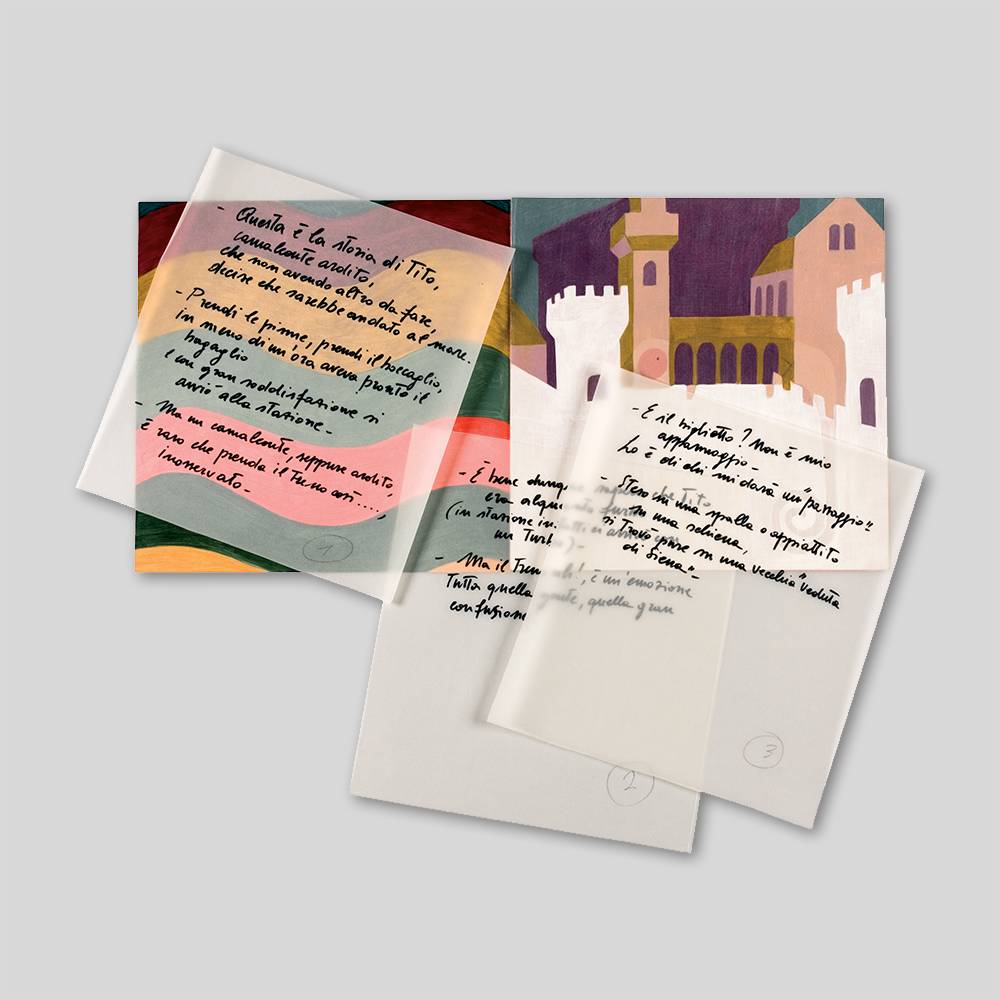 - Questa è la storia di Tito,
camaleonte ardito,
che non avendo altro da fare,
decise che sarebbe andato al mare.
- Prendi le pinne, prendi il boccaglio,
in meno di un'ora aveva pronto il
bagaglio
e con gran soddisfazione si
avviò alla stazione -
- Ma un camaleonte, seppure ardito,
è raro che prenda il treno così....,
inosservato -
1
- È bene dunque che Tito
era
(in stazione in
un
- Ma il Treno, ah!, è un'emozione
Tutta quella gente, quella gran
confusione
2
- E il biglietto? Non è mio
appannaggio -
Lo è di chi mi darà un "passaggio"
- Steso su una spalla o appiattito
su una schiena,
si trovò pure su una vecchia "veduta
di Siena" -
3